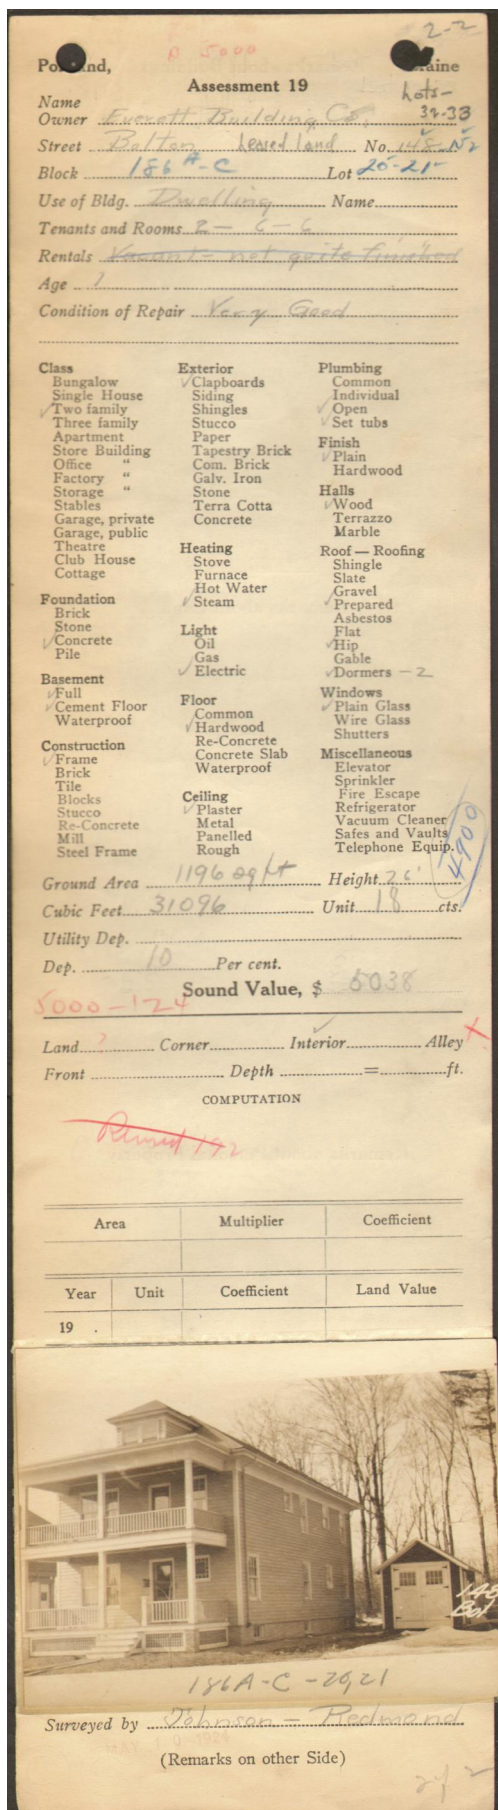 2-2
D 5000
Portland, Maine
Assessment 19
Lots-
32-33
Name
Owner Everett Building Co.
Street Bolton Leased land No. 148-152
Block 186 A-C Lot 20-21
Use of Bldg. Dwelling Name
Tenants and Rooms 2 - 6 - 6
Rentals Vacant - not quite finished
Age 1
Condition of Repair Very Good
Class
Bungalow
Single House
✓Two family
Three family
Apartment
Store Building
Office "
Factory "
Storage "
Stables
Garage, private
Garage, public
Theatre
Club House
Cottage
Foundation
Brick
Stone
✓Concrete
Pile
Basement
✓Full
✓Cement Floor
Waterproof
Construction
✓Frame
Brick
Tile
Blocks
Stucco
Re-Concrete
Mill
Steel Frame
Exterior
✓Clapboards
Siding
Shingles
Stucco
Paper
Tapestry Brick
Com. Brick
Galv. Iron
Stone
Terra Cotta
Concrete
Heating
Stove
Furnace
Hot Water
✓Steam
Light
Oil
Gas
✓Electric
Floor
Common
✓Hardwood
Re-Concrete
Concrete Slab
Waterproof
Ceiling
✓Plaster
Metal
Panelled
Rough
Plumbing
Common
Individual
✓Open
✓Set tubs
Finish
✓Plain
Hardwood
Halls
✓Wood
Terrazzo
Marble
Roof — Roofing
Shingle
Slate
Gravel
✓Prepared
Asbestos
Flat
✓Hip
Gable
✓Dormers - 2
Windows
✓Plain Glass
Wire Glass
Shutters
Miscellaneous
Elevator
Sprinkler
Fire Escape
Refrigerator
Vacuum Cleaner
Safes and Vaults
Telephone Equip.
4900
Ground Area 1196 sq ft Height 26'
Cubic Feet 31096 Unit 18 cts.
Utility Dep.
Dep. 10 Per cent.
Sound Value, $ 5038
5000-124
Land ? Corner Interior ✓ Alley X
Front Depth = ft.
COMPUTATION
Revised 192
Area Multiplier Coefficient
Year Unit Coefficient Land Value
19 .
148
Bol
186A-C-20,21
Surveyed by Johnson - Redmond
(Remarks on other Side)
2 of 2